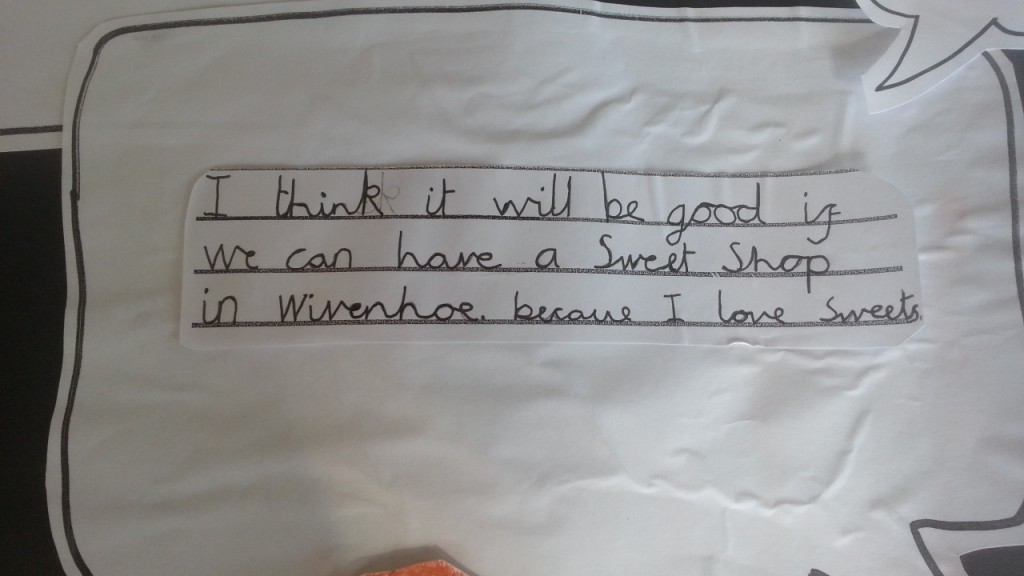 I think it will be good if
we can have a Sweet Shop
in Wivenhoe. becaus I love Sweets.